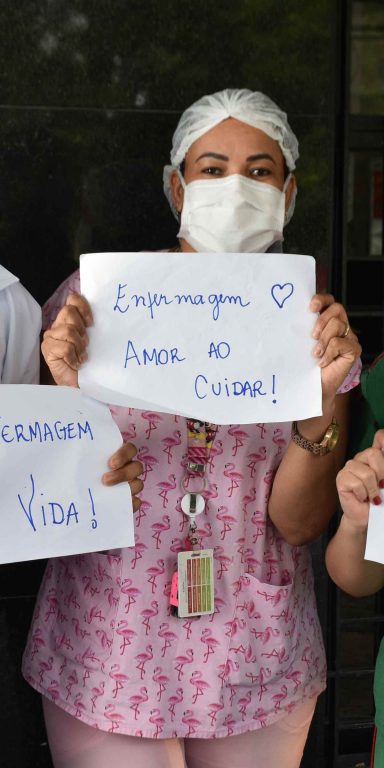 Enfermagem ♡
AMOR AO
CUIDAR!
ERMAGEM
Vida!